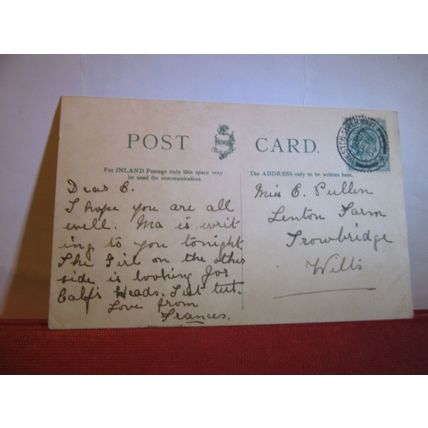 POST CARD.
For INLAND Postage only this space may
be used for communication.
The ADDRESS only to be written here.
Dear E.
I hope you are all
well. Ma is writ
ing to you tonight.
The Girl on the other
side is looking for
Calf's Heads.
Love from
Frances.
Miss E. Pullen
Lenton Farm
Trowbridge
Wilts